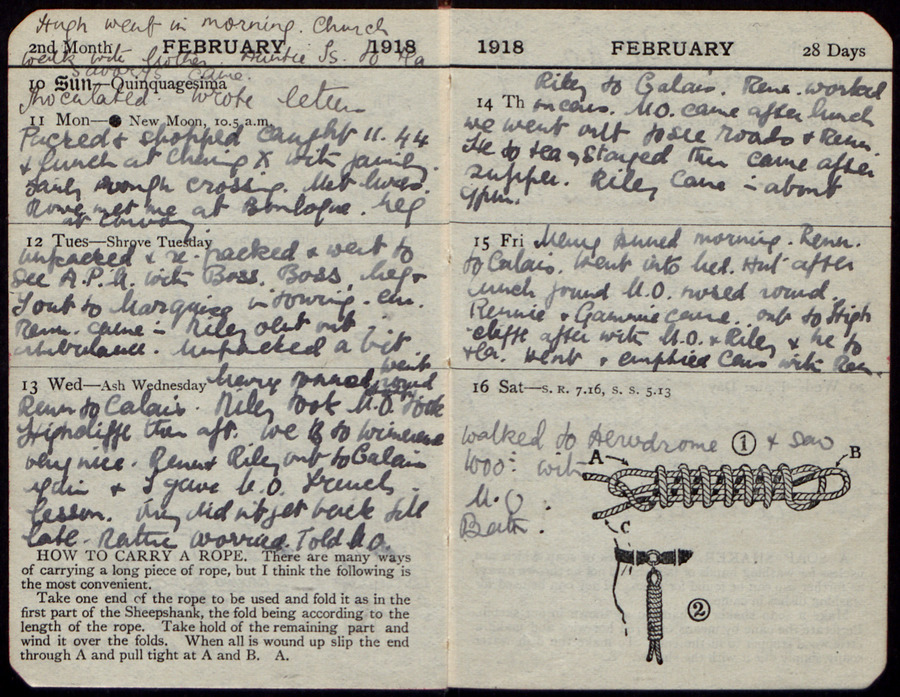 Hugh went in morning. Church
2nd Month FEBRUARY 1918
went with Mother. Auntie Is. to tea
Savory's came.
10 Sun—Quinquagesima
Inoculated. Wrote letters
11 Mon—● New Moon, 10.5 a.m.
Packed & shopped caught 11.44
& lunch at Ching X with family
rough crossing. Met
met me at Boulogne. Meg
at convoy
12 Tues—Shrove Tuesday
unpacked & re-packed & went to
see A.P.M. with Boss. Boss, Meg &
I out to Marquise in towing. em.
Renn. came in Riley out out in
ambulance. Unpacked a bit
13 Wed—Ash Wednesday went
Renn to Calais. Riley took M.O. took
Highcliffe then aft. We to Wimereux
very nice. Renn & Riley out to Calais
again & I gave M.O. French
lesson. They did not get back till
late. Rather worried. Told M.O.
HOW TO CARRY A ROPE. There are many ways
of carrying a long piece of rope, but I think the following is
the most convenient.
Take one end of the rope to be used and fold it as in the
first part of the Sheepshank, the fold being according to the
length of the rope. Take hold of the remaining part and
wind it over the folds. When all is wound up slip the end
through A and pull tight at A and B. A.
1918 FEBRUARY 28 Days
Riley to Calais. Renn. worked
14 Th in cars. M.O. came after lunch
we went out to see roads & Renn.
He to tea & stayed then came after
supper. Riley came in about
9pm.
15 Fri morning. Renn.
to Calais. Went into bed. Hut after
lunch found M.O. nosed round.
Rennie & Gammie came. out to High
cliffe after with M.O. & Riley & he to
tea. Went & emptied cars with Renn.
16 Sat—S. R. 7.16, S. S. 5.13
walked to Aerodrome 1 & saw
with
M.O.
Bath.
A
B
C
2